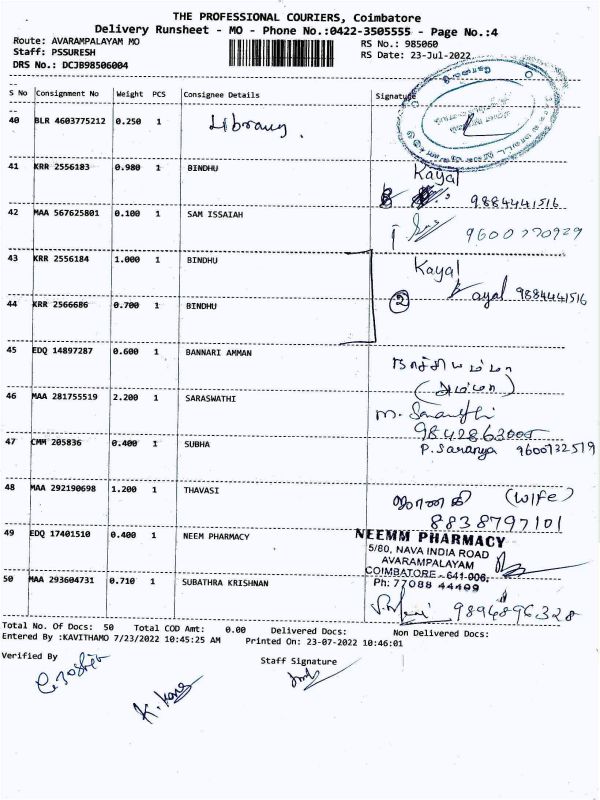 THE PROFESSIONAL COURIERS, Coimbatore
Delivery Runsheet - MO - Phone No.:0422-3505555 - Page No.:4
Route: AVARAMPALAYAM MO RS No.: 985060
Staff: PSSURESH RS Date: 23-Jul-2022
DRS No.: DCJB98506004
S No Consignment No Weight PCS Consignee Details Signature
40 BLR 4603775212 0.250 1 Library.
41 KRR 2556183 0.980 1 BINDHU Kayal
9884441516
42 MAA 567625801 0.100 1 SAM ISSAIAH
9600770929
43 KRR 2556184 1.000 1 BINDHU Kayal
② Kayal 9884441516
44 KRR 2566686 0.700 1 BINDHU
45 EDQ 14897287 0.600 1 BANNARI AMMAN நாச்சியம்மா
(அம்மா)
46 MAA 281755519 2.200 1 SARASWATHI
9842863005
47 CMM 205836 0.400 1 SUBHA P. Saranya 9600732519
48 MAA 292190698 1.200 1 THAVASI ஜானகி (Wife)
8838797101
49 EDQ 17401510 0.400 1 NEEM PHARMACY NEEMM PHARMACY
5/80, NAVA INDIA ROAD
AVARAMPALAYAM
COIMBATORE - 641-006.
Ph: 77088 44409
50 MAA 293604731 0.710 1 SUBATHRA KRISHNAN
9894896328
Total No. Of Docs: 50 Total COD Amt: 0.00 Delivered Docs: Non Delivered Docs:
Entered By :KAVITHAMO 7/23/2022 10:45:25 AM Printed On: 23-07-2022 10:46:01
Verified By Staff Signature